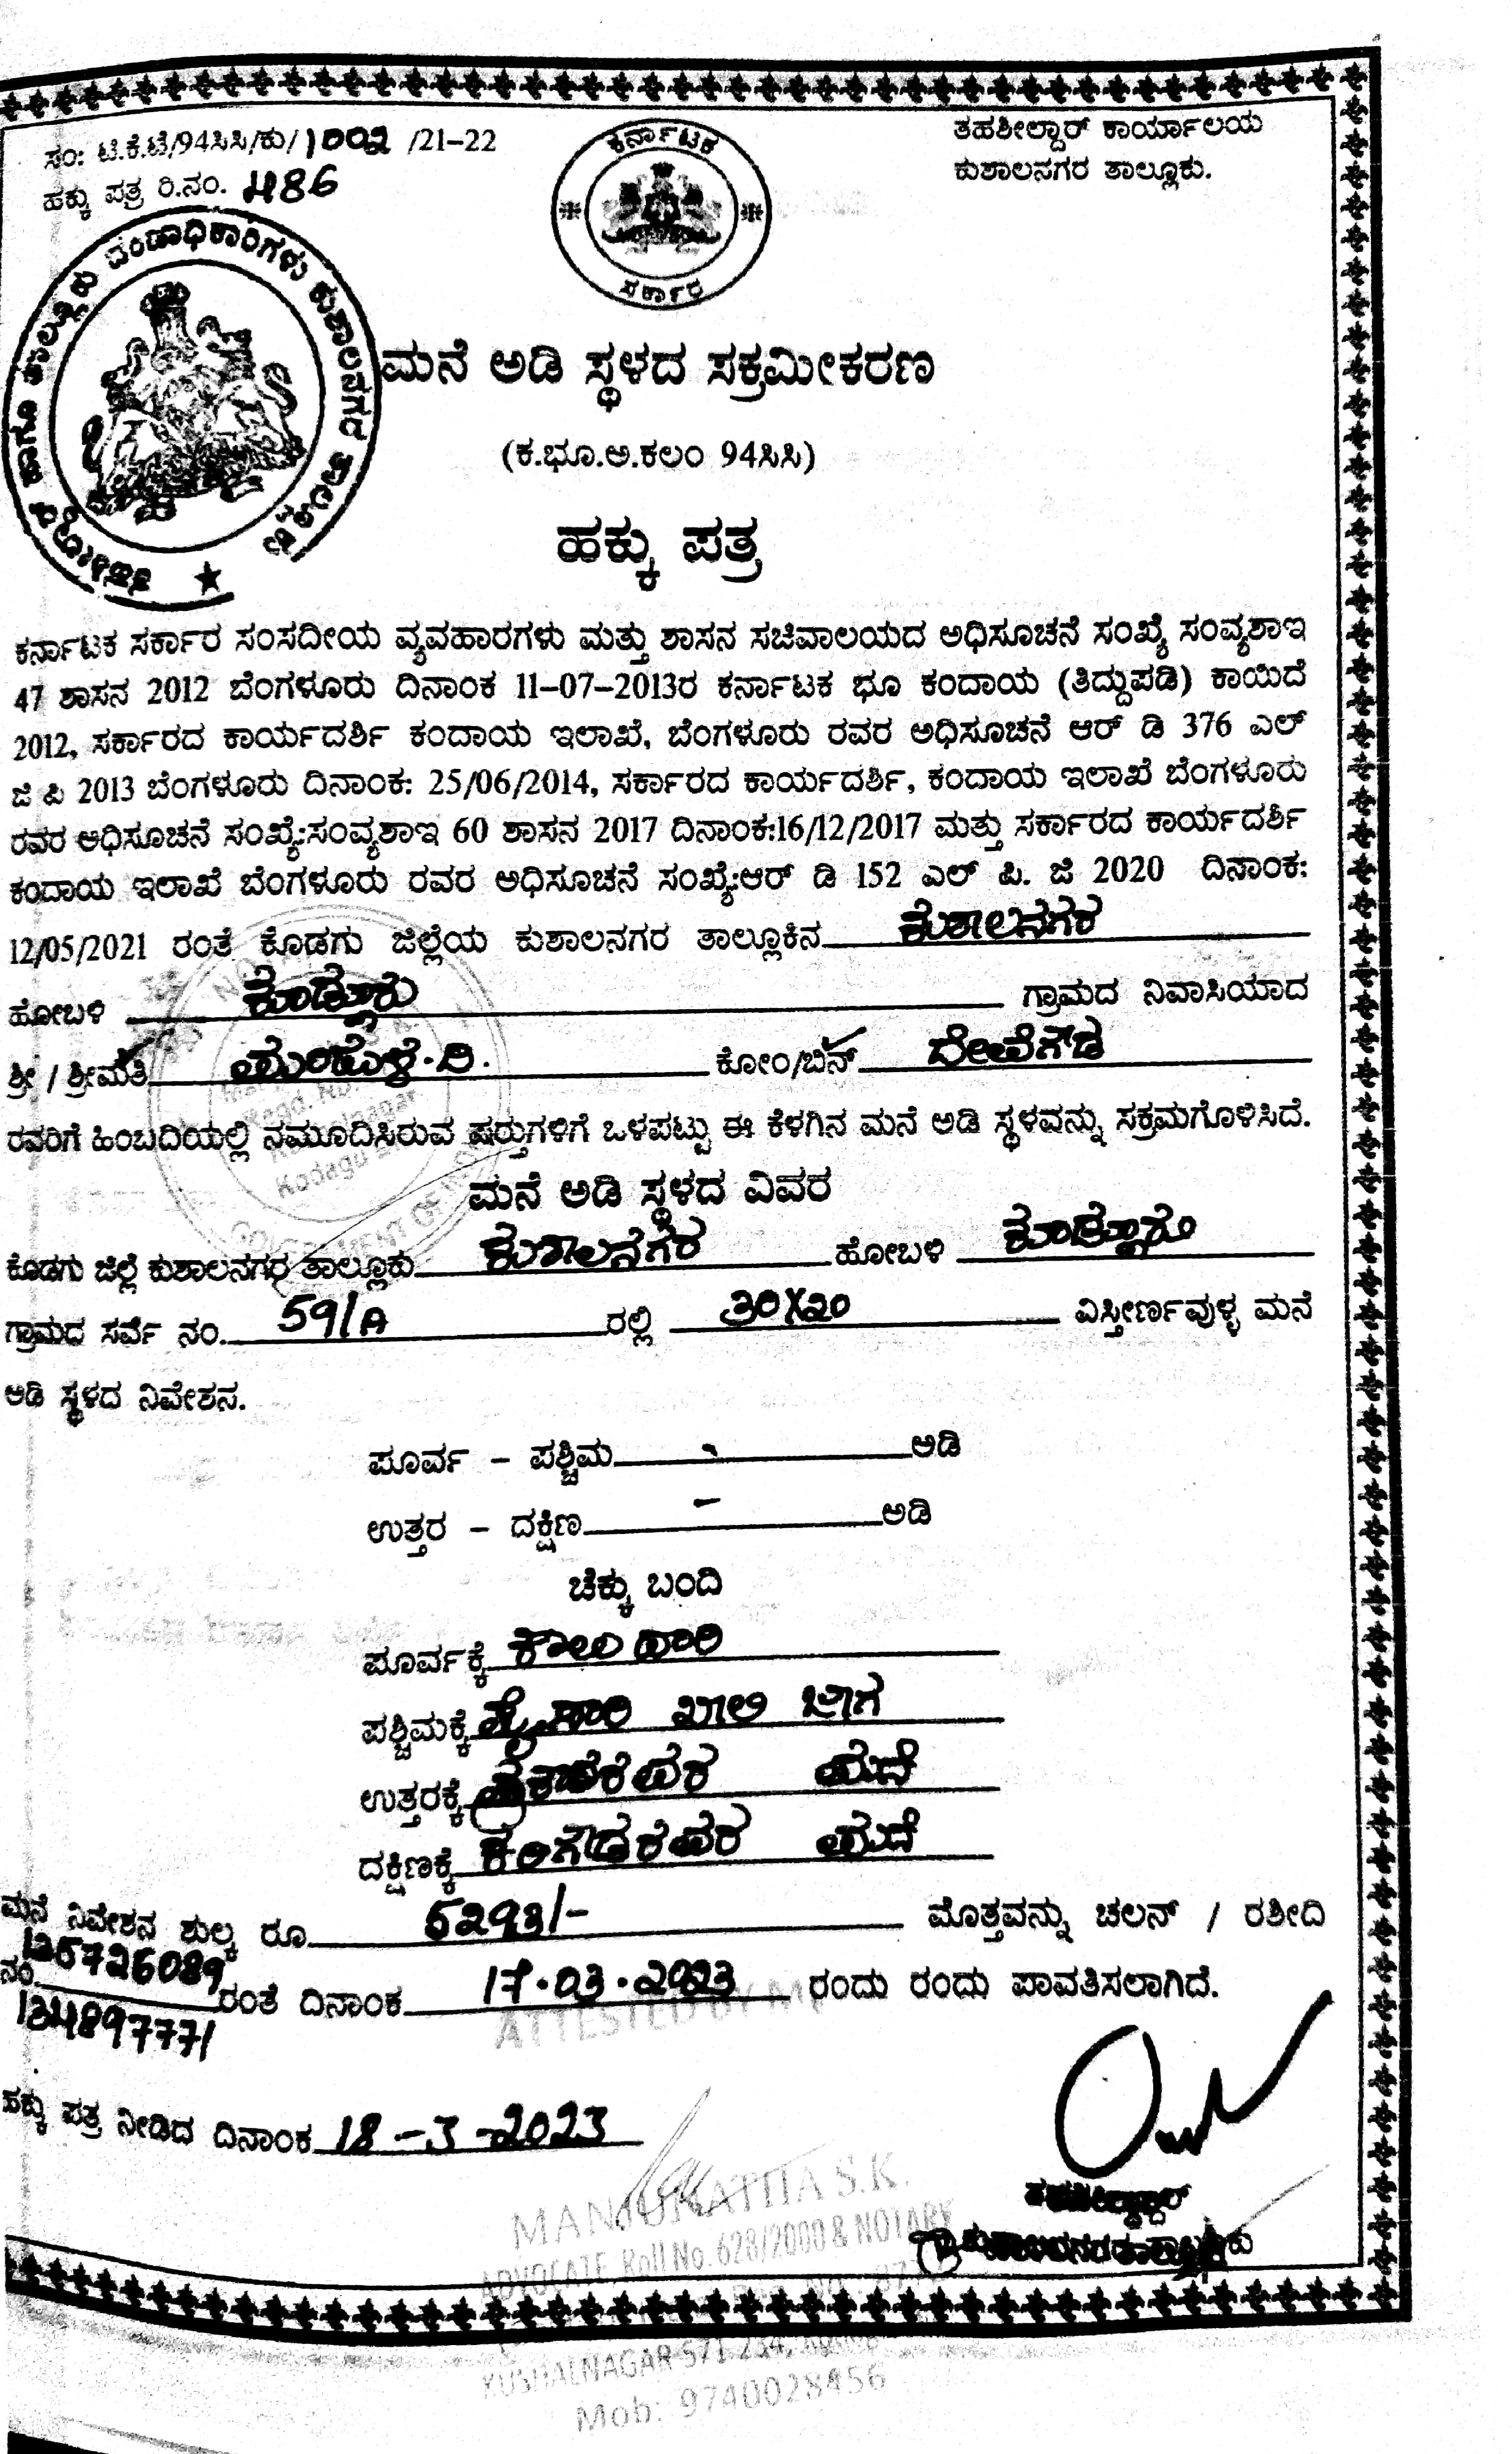 ಸಂ: ಟಿ.ಕೆ.ಟಿ/94ಸಿಸಿ/ಕು/1002 /21-22
ಹಕ್ಕು ಪತ್ರ ರಿ.ನಂ. 486
ತಹಶೀಲ್ದಾರ್ ಕಾರ್ಯಾಲಯ
ಕುಶಾಲನಗರ ತಾಲ್ಲೂಕು.
ಕರ್ನಾಟಕ
ಸರ್ಕಾರ
ತಾಲ್ಲೂಕು ದಂಡಾಧಿಕಾರಿಗಳು ಕುಶಾಲನಗರ ತಾಲ್ಲೂಕು
ಮನೆ ಅಡಿ ಸ್ಥಳದ ಸಕ್ರಮೀಕರಣ
(ಕ.ಭೂ.ಅ.ಕಲಂ 94ಸಿಸಿ)
ಹಕ್ಕು ಪತ್ರ
ಕರ್ನಾಟಕ ಸರ್ಕಾರ ಸಂಸದೀಯ ವ್ಯವಹಾರಗಳು ಮತ್ತು ಶಾಸನ ಸಚಿವಾಲಯದ ಅಧಿಸೂಚನೆ ಸಂಖ್ಯೆ ಸಂವ್ಯಶಾಇ
47 ಶಾಸನ 2012 ಬೆಂಗಳೂರು ದಿನಾಂಕ 11-07-2013ರ ಕರ್ನಾಟಕ ಭೂ ಕಂದಾಯ (ತಿದ್ದುಪಡಿ) ಕಾಯಿದೆ
2012, ಸರ್ಕಾರದ ಕಾರ್ಯದರ್ಶಿ ಕಂದಾಯ ಇಲಾಖೆ, ಬೆಂಗಳೂರು ರವರ ಅಧಿಸೂಚನೆ ಆರ್ ಡಿ 376 ಎಲ್
ಜಿ ಪಿ 2013 ಬೆಂಗಳೂರು ದಿನಾಂಕ: 25/06/2014, ಸರ್ಕಾರದ ಕಾರ್ಯದರ್ಶಿ, ಕಂದಾಯ ಇಲಾಖೆ ಬೆಂಗಳೂರು
ರವರ ಅಧಿಸೂಚನೆ ಸಂಖ್ಯೆ:ಸಂವ್ಯಶಾಇ 60 ಶಾಸನ 2017 ದಿನಾಂಕ:16/12/2017 ಮತ್ತು ಸರ್ಕಾರದ ಕಾರ್ಯದರ್ಶಿ
ಕಂದಾಯ ಇಲಾಖೆ ಬೆಂಗಳೂರು ರವರ ಅಧಿಸೂಚನೆ ಸಂಖ್ಯೆ:ಆರ್ ಡಿ 152 ಎಲ್ ಪಿ. ಜಿ 2020 ದಿನಾಂಕ:
12/05/2021 ರಂತೆ ಕೊಡಗು ಜಿಲ್ಲೆಯ ಕುಶಾಲನಗರ ತಾಲ್ಲೂಕಿನ ಕುಶಾಲನಗರ
ಹೋಬಳಿ ಕೂಡ್ಲೂರು ಗ್ರಾಮದ ನಿವಾಸಿಯಾದ
ಶ್ರೀ / ಶ್ರೀಮತಿ ಕೋಂ/ಬಿನ್ ದೇವೇಗೌಡ
ರವರಿಗೆ ಹಿಂಬದಿಯಲ್ಲಿ ನಮೂದಿಸಿರುವ ಷರ್ತುಗಳಿಗೆ ಒಳಪಟ್ಟು ಈ ಕೆಳಗಿನ ಮನೆ ಅಡಿ ಸ್ಥಳವನ್ನು ಸಕ್ರಮಗೊಳಿಸಿದೆ.
ಮನೆ ಅಡಿ ಸ್ಥಳದ ವಿವರ
ಕೊಡಗು ಜಿಲ್ಲೆ ಕುಶಾಲನಗರ ತಾಲ್ಲೂಕು ಕುಶಾಲನಗರ ಹೋಬಳಿ ಕೂಡ್ಲೂರು
ಗ್ರಾಮದ ಸರ್ವೆ ನಂ. 59/A ರಲ್ಲಿ 30X20 ವಿಸ್ತೀರ್ಣವುಳ್ಳ ಮನೆ
ಅಡಿ ಸ್ಥಳದ ನಿವೇಶನ.
ಪೂರ್ವ - ಪಶ್ಚಿಮ - ಅಡಿ
ಉತ್ತರ - ದಕ್ಷಿಣ - ಅಡಿ
ಚೆಕ್ಕು ಬಂದಿ
ಪೂರ್ವಕ್ಕೆ ಕಾಲು ದಾರಿ
ಪಶ್ಚಿಮಕ್ಕೆ ಪೈಸಾರಿ ಖಾಲಿ ಜಾಗ
ಉತ್ತರಕ್ಕೆ ಮನೆ
ದಕ್ಷಿಣಕ್ಕೆ ಮನೆ
ಮನೆ ನಿವೇಶನ ಶುಲ್ಕ ರೂ. 5293/- ಮೊತ್ತವನ್ನು ಚಲನ್ / ರಶೀದಿ
ನಂ. 126726089 ರಂತೆ ದಿನಾಂಕ 17.03.2023 ರಂದು ರಂದು ಪಾವತಿಸಲಾಗಿದೆ.
134897771
ATTESTED BY ME
ಹಕ್ಕು ಪತ್ರ ನೀಡಿದ ದಿನಾಂಕ 18-3-2023
ತಹಶೀಲ್ದಾರ್
ಕುಶಾಲನಗರ ತಾಲ್ಲೂಕು
MANJUNATHA S.K.
ADVOCATE, Roll No. 628/2000 & NOTARY
KUSHALNAGAR-571 234,
Mob: 9740028456